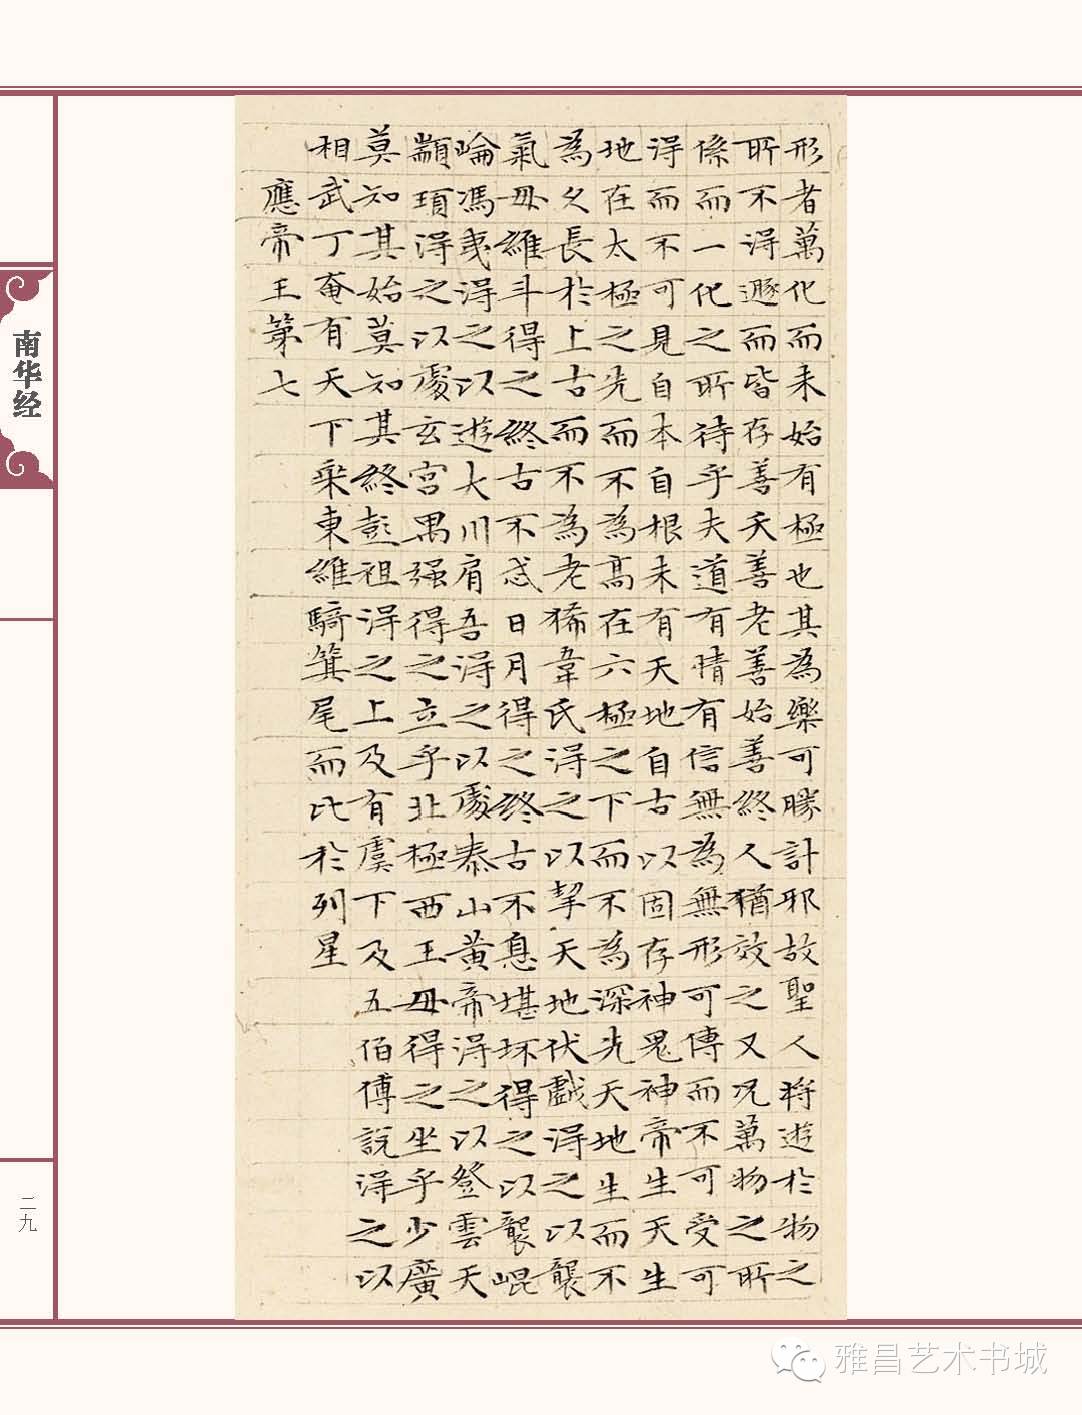 形者萬化而未始有極也其為樂可勝計邪故聖人將遊於物之
所不得遯而皆存善夭善老善始善終人猶效之又况萬物之所
係而一化之所待乎夫道有情有信無為無形可傳而不可受可
得而不可見自本自根未有天地自古以固存神鬼神帝生天生
地在太極之先而不為高在六極之下而不為深先天地生而不
為久長於上古而不為老狶韋氏得之以挈天地伏戲得之以襲
氣母維斗得之終古不忒日月得之終古不息堪坏得之以襲崐
崘馮夷得之以遊大川肩吾得之以處泰山黃帝得之以登雲天
顓頊得之以處玄宮禺强得之立乎北極西王母得之坐乎少廣
莫知其始莫知其終彭祖得之上及有虞下及五伯傅說得之以
相武丁奄有天下乘東維騎箕尾而比於列星
應帝王第七
南华经
二九
雅昌艺术书城